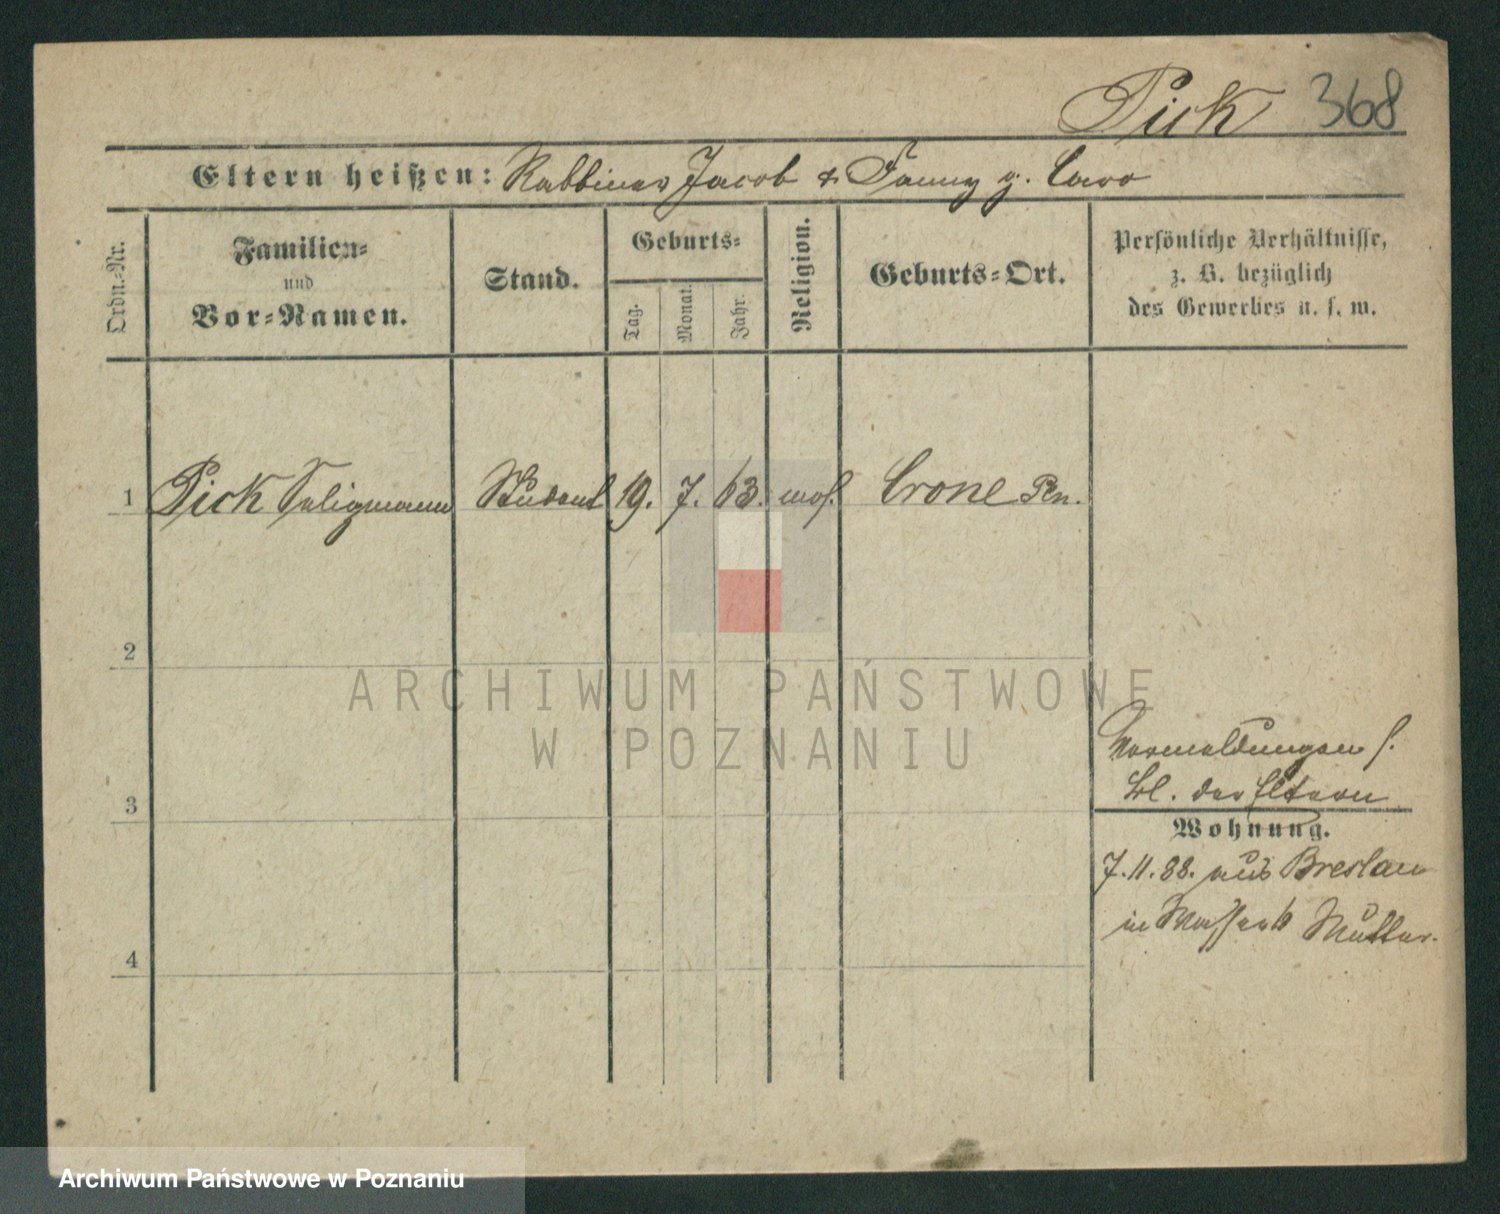 Pick 368
Eltern heißen: Rabbiner Jacob & Fanny g. Caro
Ordn.-Nr.
Familien-
und
Vor-Namen.
Stand.
Geburts-
Tag.
Monat.
Jahr.
Religion.
Geburts-Ort.
Persönliche Verhältnisse,
z. B. bezüglich
des Gewerbes u. s. w.
1 Pick Seligmann Student 19. 7. 63. mos. Crone Pn.
2
3
4
Vormeldungen s.
bl. der Eltern
Wohnung.
7.11.88. aus Breslau
in Mutter.
ARCHIWUM PAŃSTWOWE
W POZNANIU
Archiwum Państwowe w Poznaniu